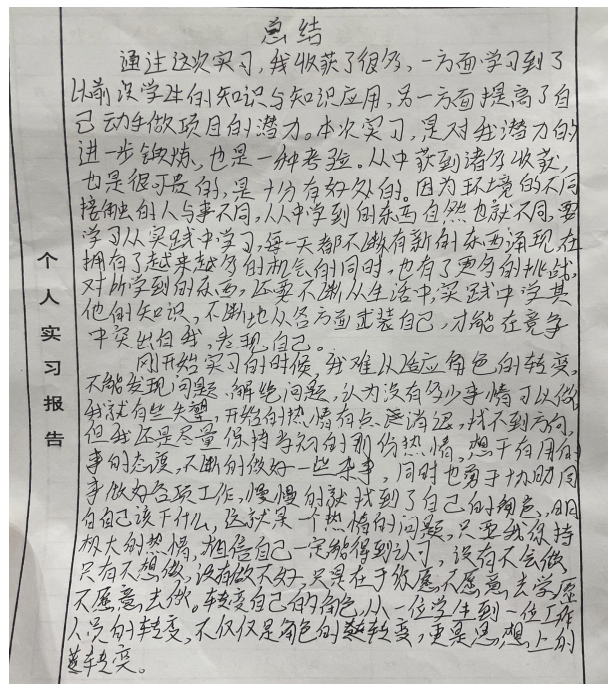 个人实习报告
总结
通过这次实习,我收获了很多,一方面学习到了
以前没学过的知识与知识应用,另一方面提高了自
己动手做项目的潜力。本次实习,是对我潜力的
进一步锻炼,也是一种考验。从中获到诸多收获,
也是很可贵的,是十分有好处的。因为环境的不同,
接触的人与事不同,从中学到的东西自然也就不同。要
学习从实践中学习,每一天都不断有新的东西涌现,在
拥有了越来越多的机会的同时,也有了更多的挑战,
对所学到的东西,还要不断从生活中,实践中学其
他的知识,不断地从各方面武装自己,才能在竞争
中突出自我,表现自己。
刚开始实习的时候,我难以适应角色的转变,
不能发现问题、解绝问题,认为没有多少事情可以做,
我就有些失望,开始的热情有点消退,找不到方向,
但我还是尽量保持当初的那份热情,想干有用的
事的态度,不断的做好一些杂事,同时也勇于协助同
事做好各项工作,慢慢的就找到了自己的角色,明
白自己该干什么,这就是一个热情的问题,只要我保持
极大的热情,相信自己一定能得到认可,没有不会做,
只有不想做,没有做不好,只是在于你愿不愿意去学,愿
不愿意去做。转变自己的角色,从一位学生到一位工作
人员的转变,不仅仅是角色的转变,更是思想上的
转变。